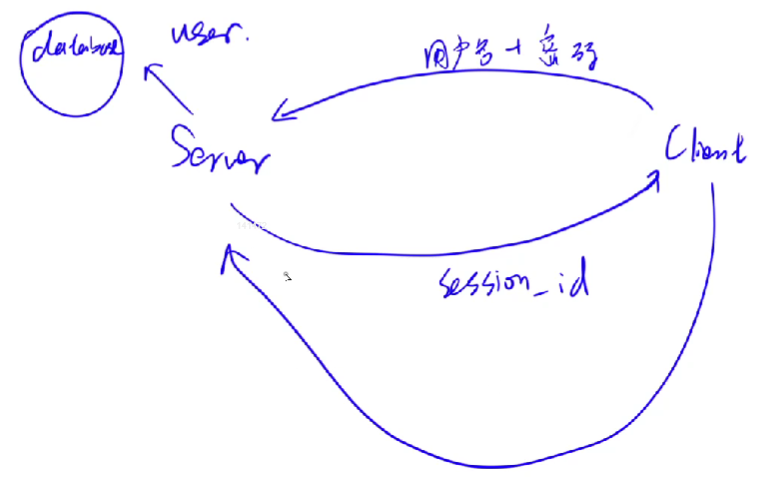 database
user.
用户名+密码
Server
Client
session_id